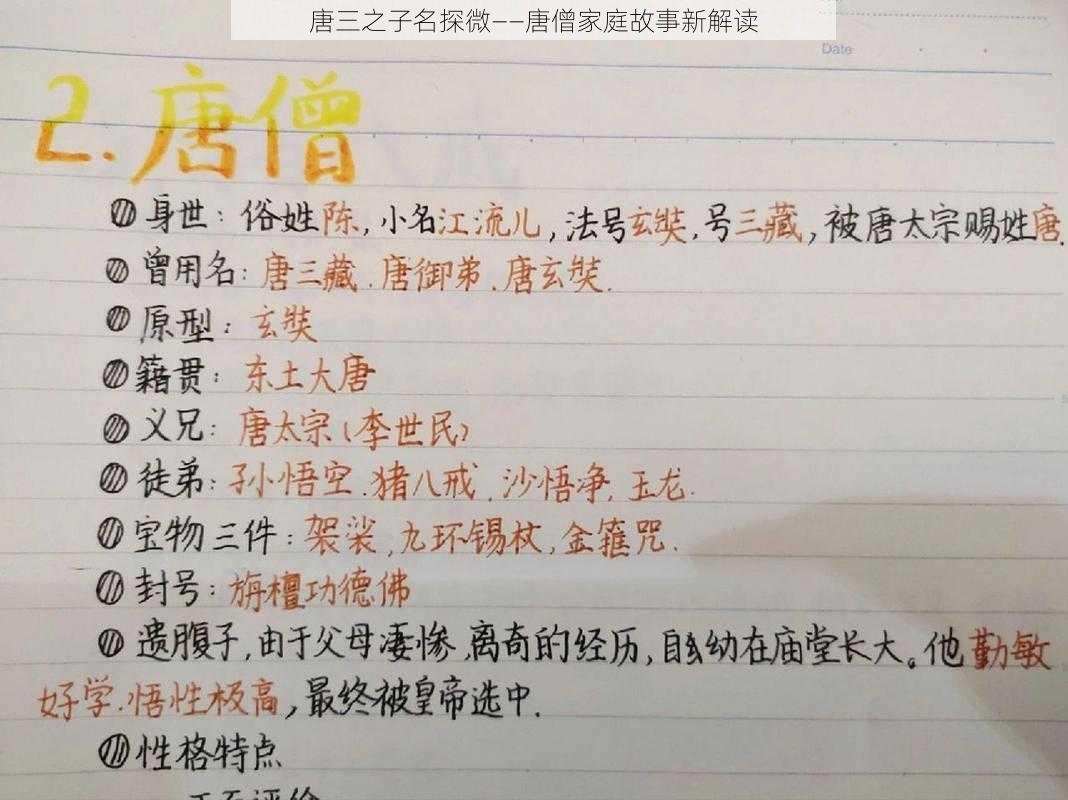 唐三之子名探微——唐僧家庭故事新解读
Date
2.唐僧
身世：俗姓陈，小名江流儿，法号玄奘，号三藏，被唐太宗赐姓唐.
曾用名：唐三藏.唐御弟.唐玄奘.
原型：玄奘
籍贯：东土大唐
义兄：唐太宗(李世民)
徒弟：孙悟空.猪八戒.沙悟净.玉龙.
宝物三件：袈裟,九环锡杖,金箍咒.
封号：旃檀功德佛
遗腹子,由于父母凄惨.离奇的经历,自幼在庙堂长大。他勤敏
好学.悟性极高,最终被皇帝选中.
性格特点
正面评价